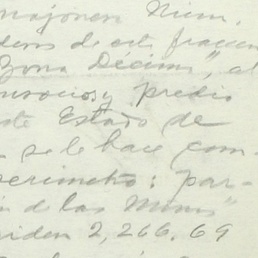 mojonera Núm.
deros de esta fracción
Zona Décima", al
predio
ste Estado de
se le hace com-
perímetro: par-
ón de las Minas"
miden 2,266.69